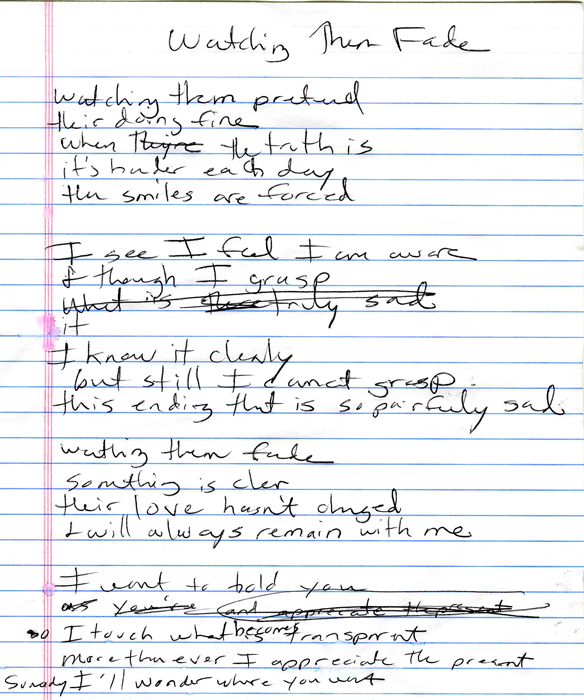 Watching Them Fade
watching them pretend
their doing fine
when They're the truth is
it's harder each day
the smiles are forced
I see I feel I am aware
& though I grasp
what is truly sad
it
I know it clearly
but still I cannot grasp
this ending that is so painfuly sad
wathing them fade
Something is cler
their love hasn't changed
& will always remain with me
I want to hold you
as you're and appreciate the present
so I touch what becomes transparnt
more than ever I appreciate the present
Someday I'll wonder where you went